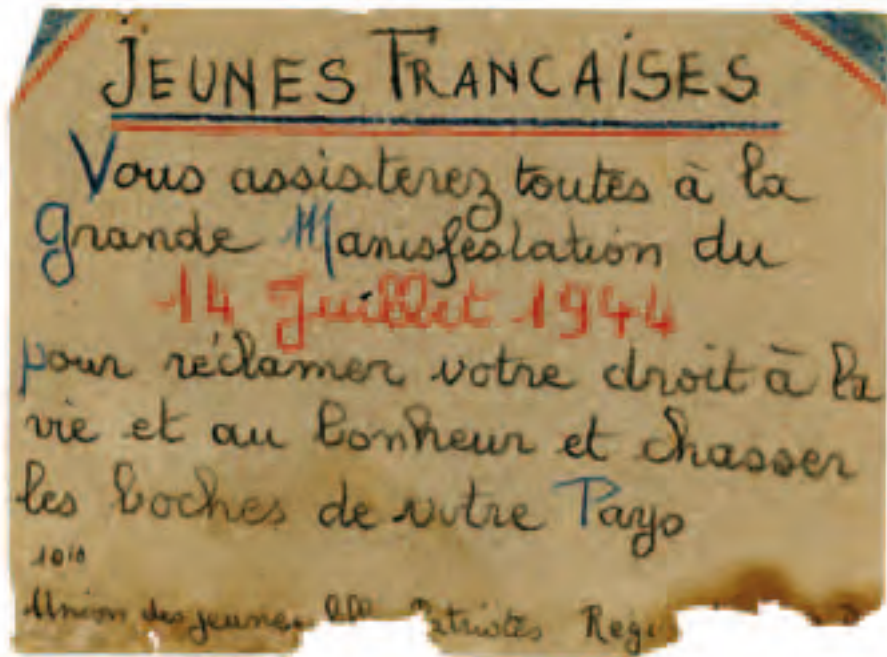 JEUNES FRANCAISES
Vous assisterez toutes à la
grande Manisfestation du
14 Juillet 1944
pour réclamer votre droit à la
vie et au bonheur et chasser
les boches de votre Pays
Union des jeunes